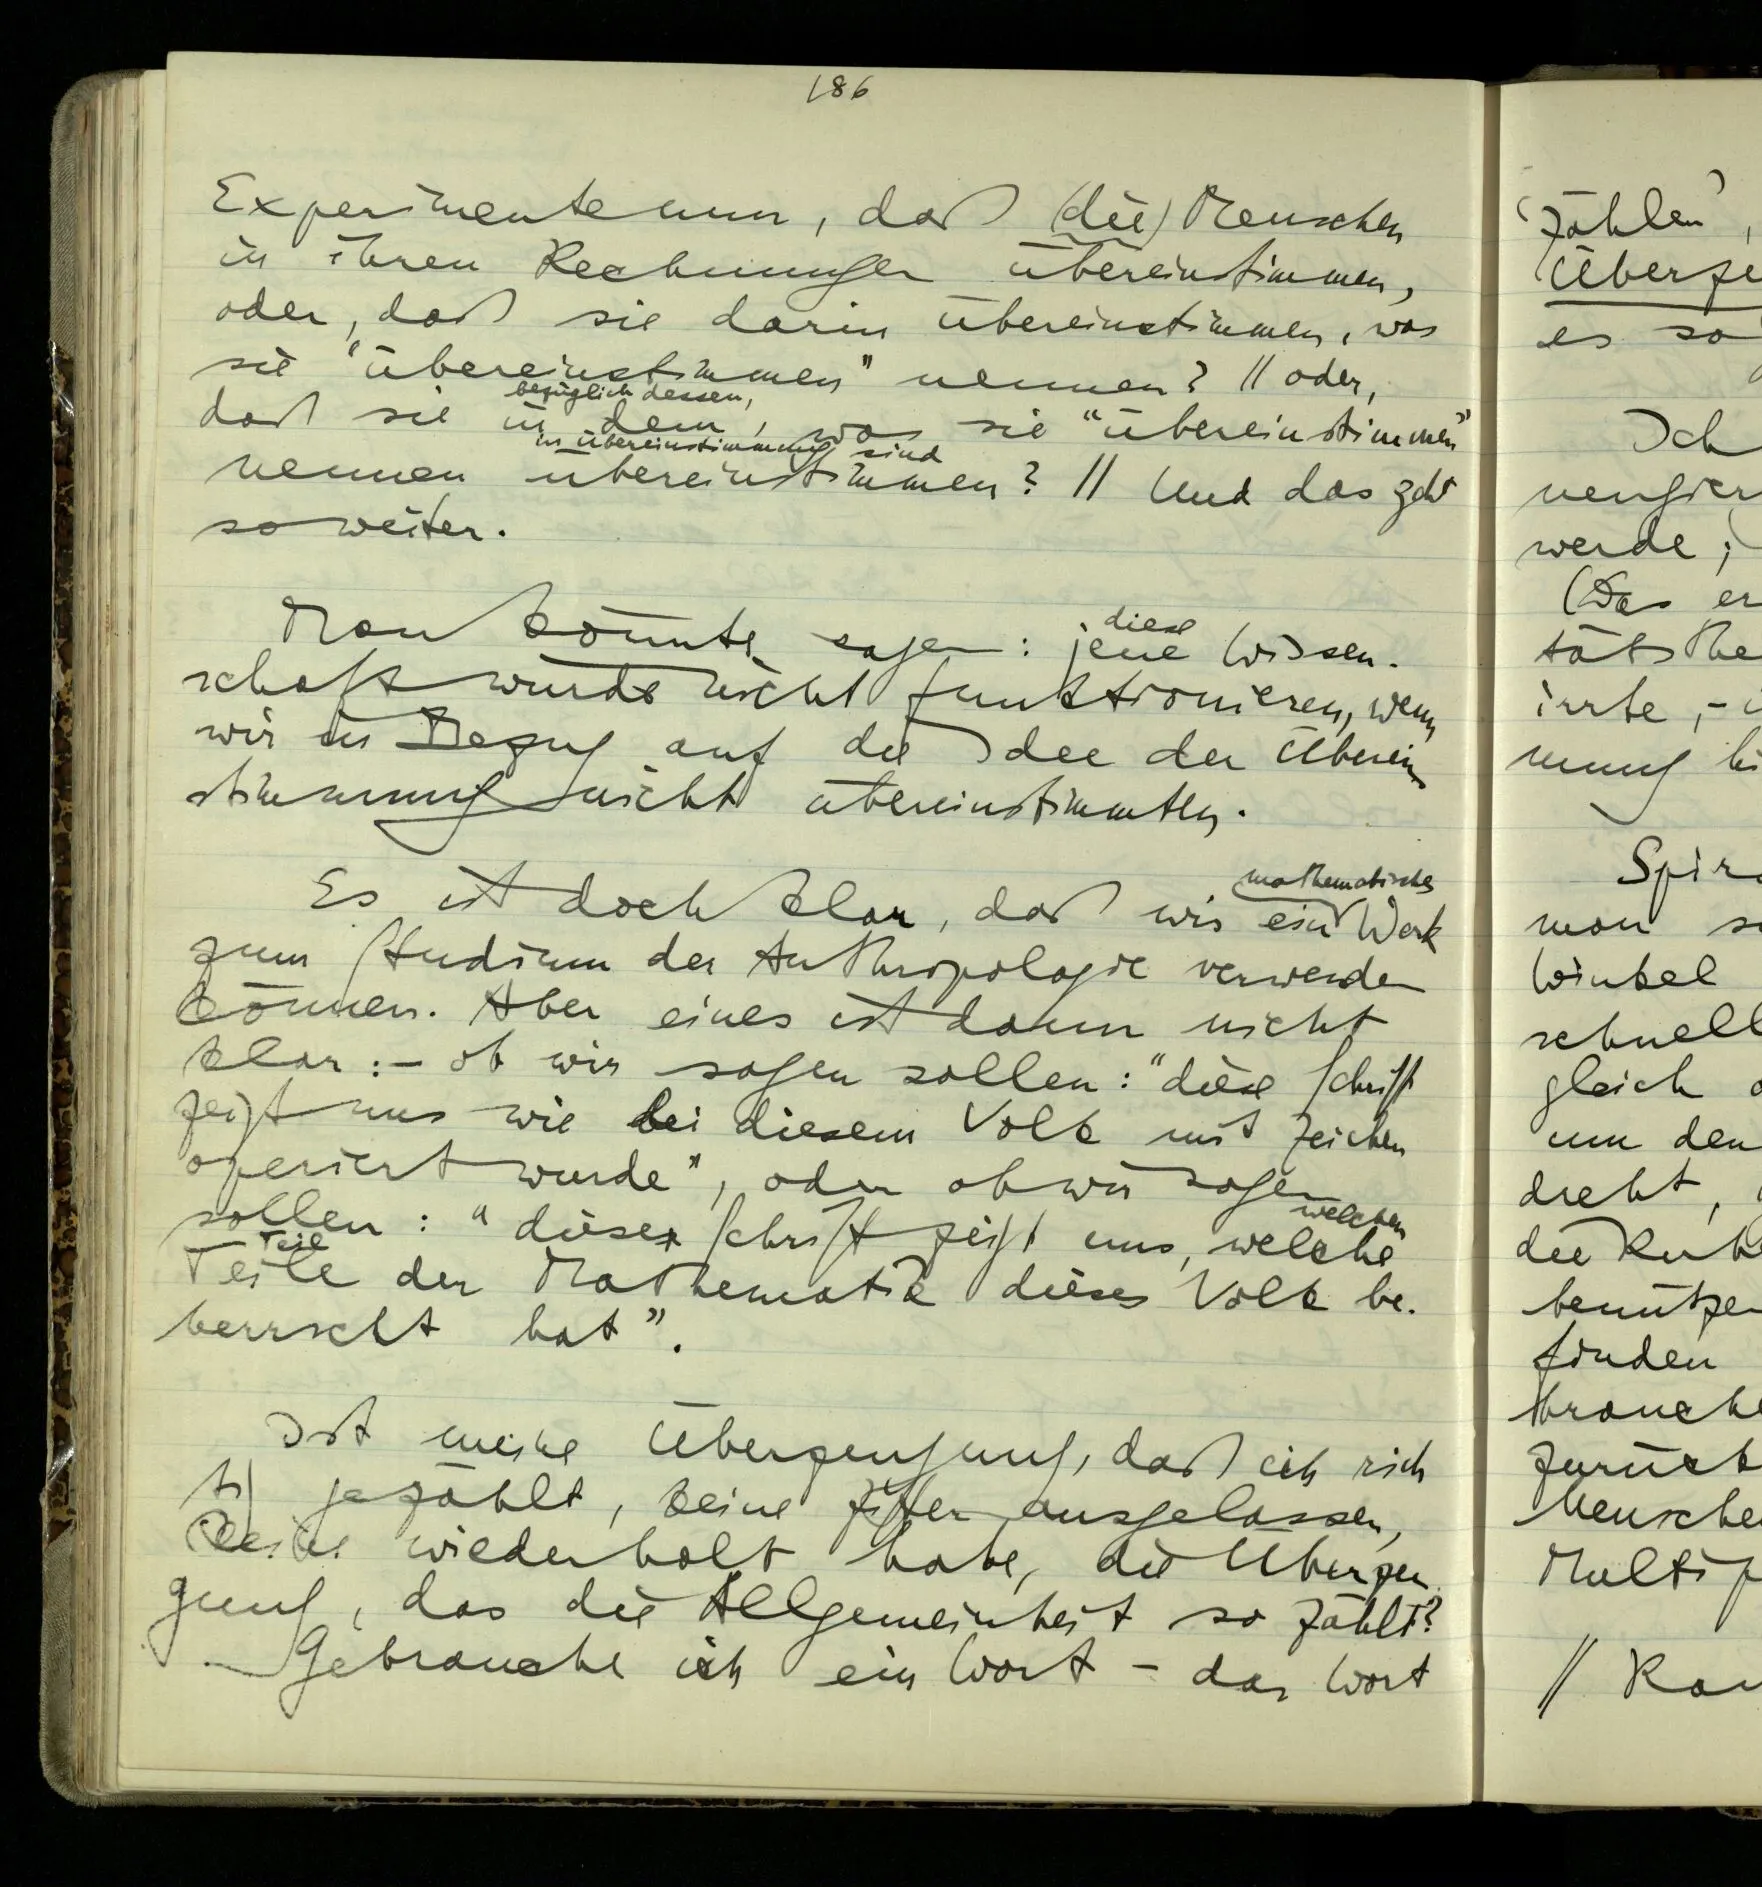 186
Experimente nun, daß (die) Menschen
in ihren Rechnungen übereinstimmen,
oder, daß sie darin übereinstimmen, was
sie "übereinstimmen" nennen? || oder,
bezüglich dessen,
daß sie in dem, was sie "übereinstimmen"
in Übereinstimmung sind
nennen übereinstimmen? || Und das geht
so weiter.
Man könnte sagen: jene Wissen-
diese
schaft würde nicht funktionieren, wenn
wir in Bezug auf die Idee der Überein
stimmung nicht übereinstimmten.
mathematisches
Es ist doch klar, daß wir ein Werk
zum Studium der Anthropologie verwenden
können. Aber eines ist dann nicht
klar: – ob wir sagen sollen: "diese Schrift
zeigt uns wie bei diesem Volk mit Zeichen
operiert wurde", oder ob wir sagen
welchen
sollen: "diese Schrift zeigt uns, welche
Teil
Teile der Mathematik dieses Volk be-
herrscht hat".
Ist meine Überzeugung, daß ich rich
tig gezählt, keine Ziffer ausgelassen,
keine wiederholt habe, die Überzeu
gung, das die Allgemeinheit so zählt?
Gebrauche ich ein Wort – das Wort
'zählen',
es so
Ich
werde;
(Das er
irrte, –
man
Winkel
schnell
gleich
um den
dreht,
finden
zurück
|| Kan